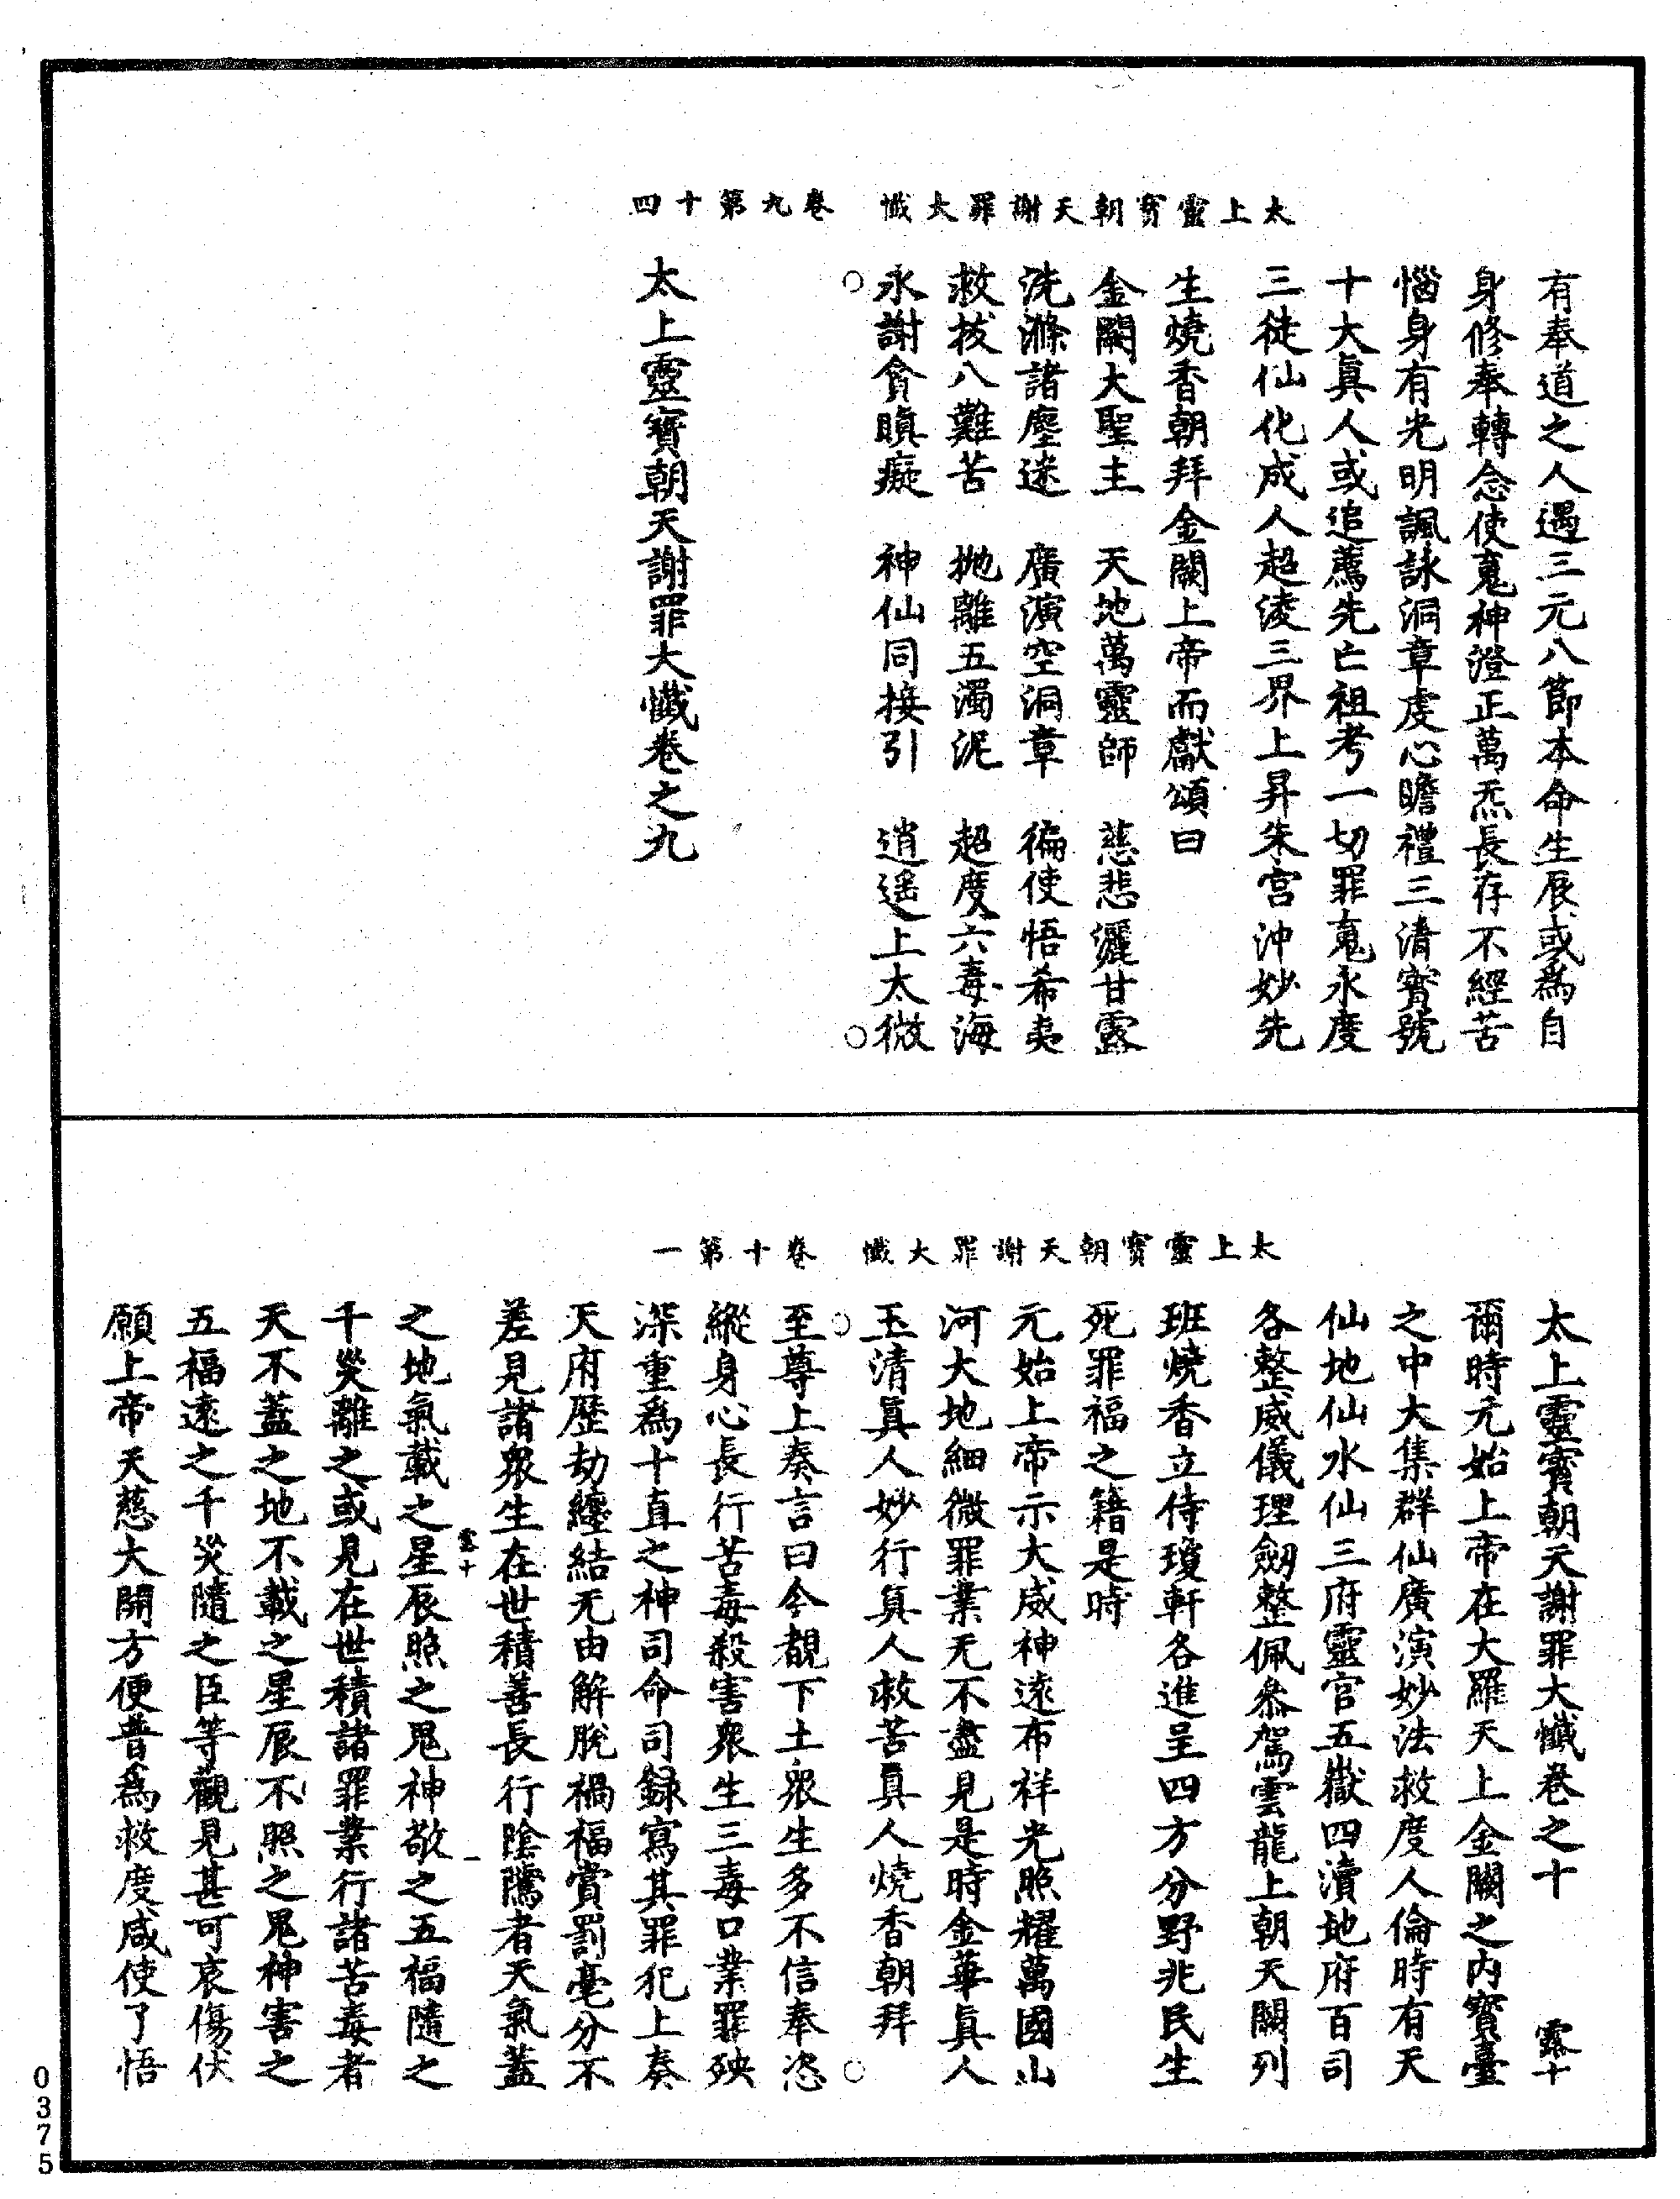 太上靈寶朝天謝罪大懺　卷九第十四
有奉道之人遇三元八節本命生辰或為自
身修奉轉念使䰟神澄正萬炁長存不經苦
惱身有光明諷詠洞章虔心瞻禮三清寳號
十大真人或追薦先亡祖考一切罪䰟永度
三徒仙化成人超淩三界上昇朱宮沖妙先
生燒香朝拜金闕上帝而獻頌曰
金闕大聖主　天地萬靈師　慈悲灑甘露
洗滌諸塵迷　廣演空洞章　徧使悟希夷
救拔八難苦　抛離五濁泥　超度六毒海
永謝貪瞋癡　神仙同接引　逍遥上太微
太上靈寶朝天謝罪大懺卷之九
太上靈寶朝天謝罪大懺　卷十第一
太上靈寶朝天謝罪大懺卷之十　露十
爾時元始上帝在大羅天上金闕之內寶臺
之中大集群仙廣演妙法救度人倫時有天
仙地仙水仙三府靈官五嶽四瀆地府百司
各整威儀理劔整佩叅駕雲龍上朝天闕列
班燒香立侍瓊軒各進呈四方分野兆民生
死罪福之籍是時
元始上帝示大威神遠布祥光照耀萬國山
河大地細微罪業无不盡見是時金華真人
玉清真人妙行真人救苦真人燒香朝拜
至尊上奏言曰今覩下土衆生多不信奉恣
縱身心長行苦毒殺害衆生三毒口業罪殃
深重為十直之神司命司録寫其罪犯上奏
天府歷劫纏結无由解脫禍福賞罰毫分不
差見諸衆生在世積善長行陰騭者天氣蓋
露十　一
之地氣載之星辰照之鬼神敬之五福隨之
千災離之或見在世積諸罪業行諸苦毒者
天不蓋之地不載之星辰不照之鬼神害之
五福遠之千災隨之臣等觀見甚可哀傷伏
願上帝天慈大開方便普為救度咸使了悟
0375